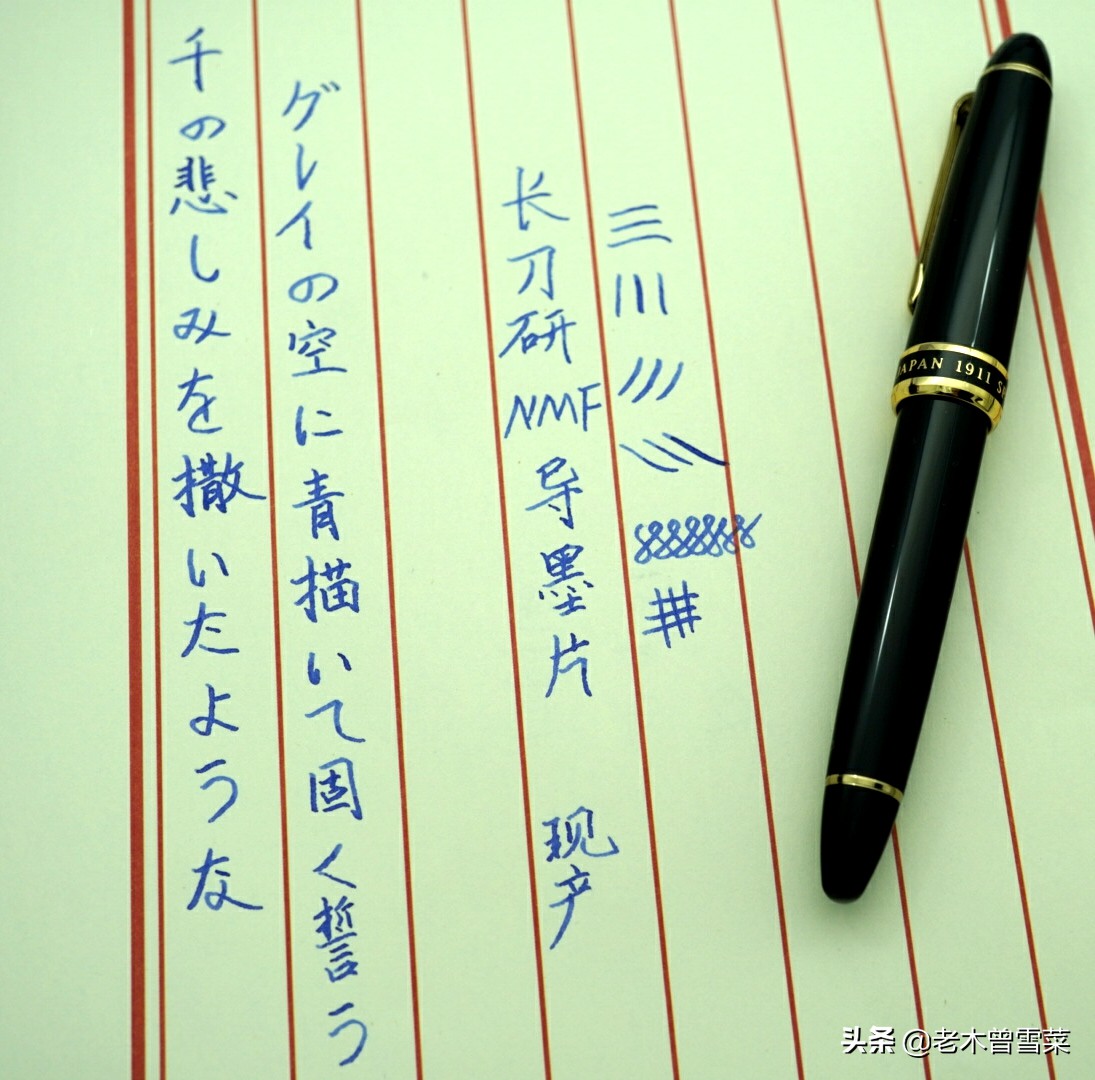 千の悲しみを撒いたような
グレイの空に青描いて固く誓う
长刀研NMF导墨片 现产
JAPAN 1911 S
头条 @老木曾雪菜